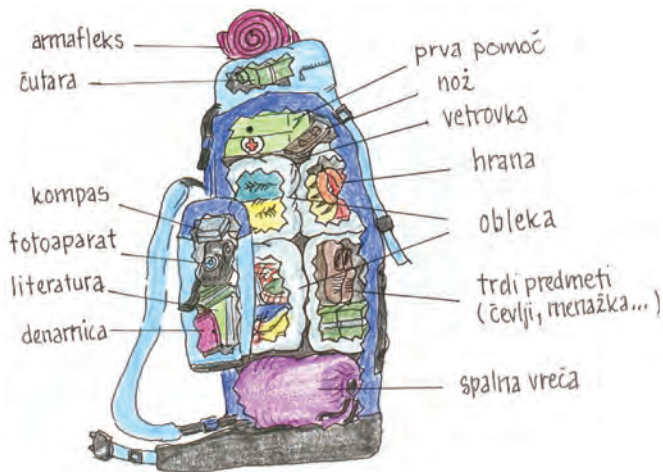 armafleks
čutara
kompas
fotoaparat
literatura
denarnica
prva pomoč
nož
vetrovka
hrana
obleka
trdi predmeti
(čevlji, menažka...)
spalna vreča